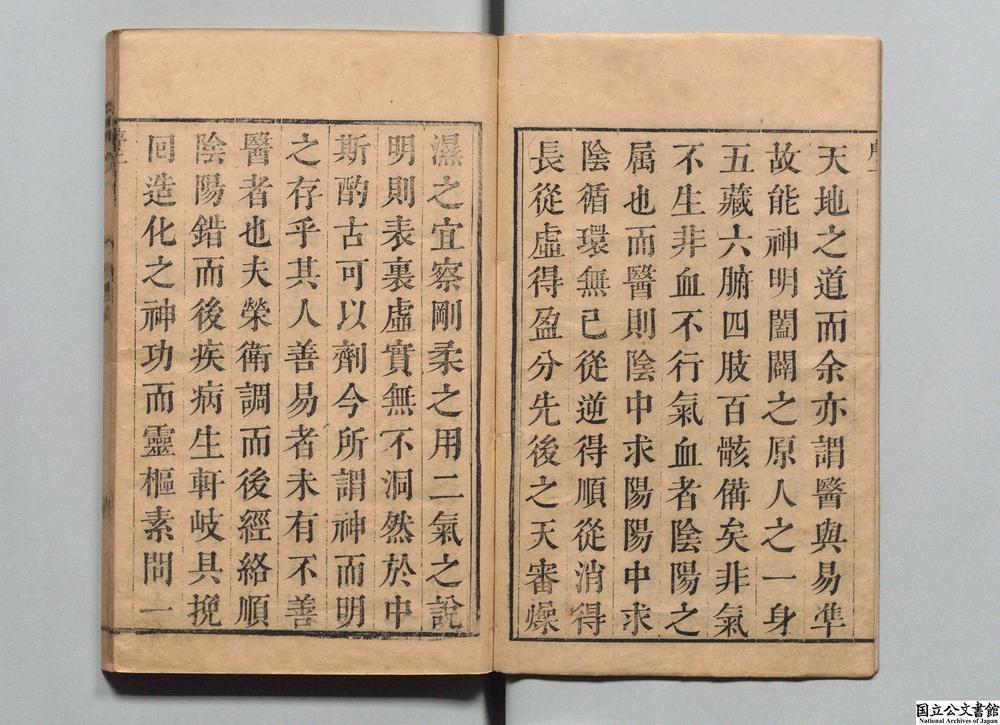 天地之道而余亦謂醫與易準
故能神明闔闢之原人之一身
五藏六腑四肢百骸備矣非氣
不生非血不行氣血者陰陽之
属也而醫則陰中求陽陽中求
陰循環無已從逆得順從消得
長從虛得盈分先後之天審燥
濕之宜察剛柔之用二氣之說
明則表裏虛實無不洞然於中
斯酌古可以劑今所謂神而明
之存乎其人善易者未有不善
醫者也夫榮衛調而後經絡順
陰陽錯而後疾病生軒岐具挽
回造化之神功而靈樞素問一
国立公文書館
National Archives of Japan